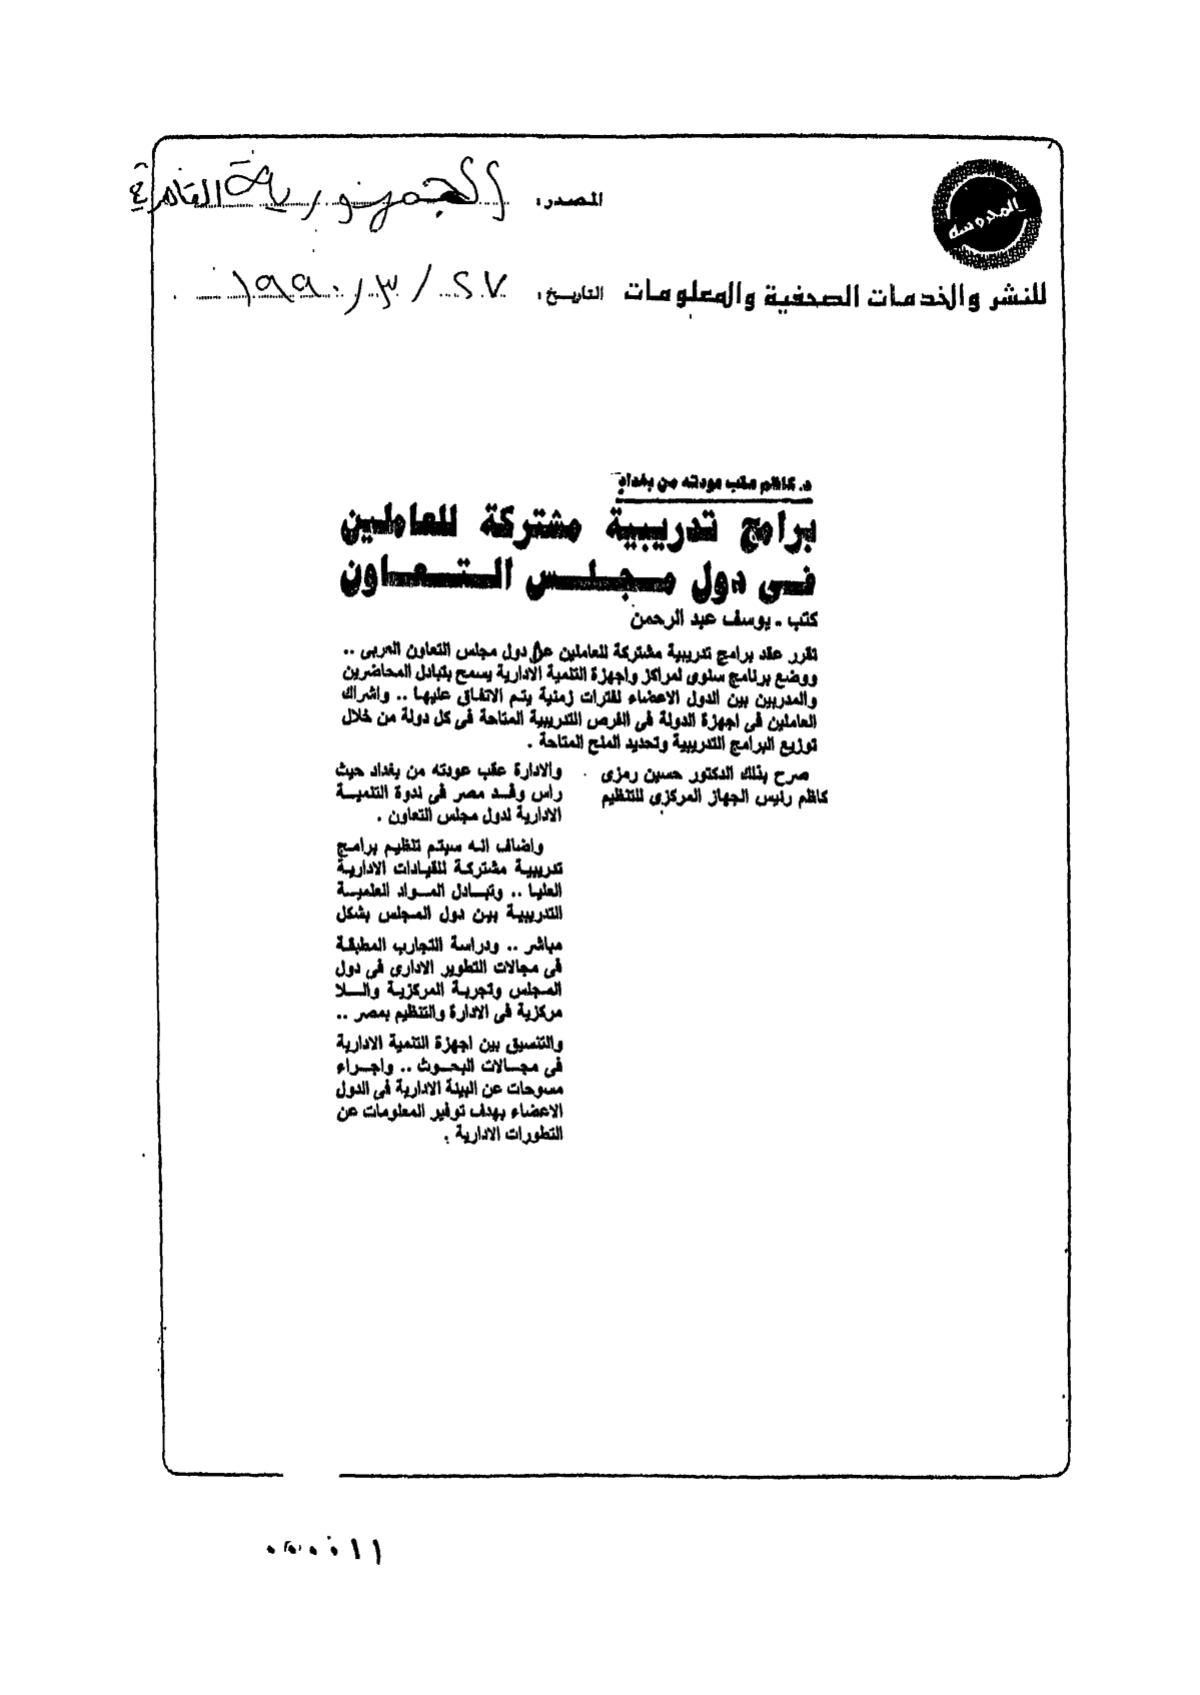 المحروسه
للنشر والخدمات الصحفية والمعلومات
المصدر: الجمهورية القاهرة
التاريخ: ٢٧ / ٣ / ١٩٩٠
د. كاظم عقب عودته من بغداد
برامج تدريبية مشتركة للعاملين
فى دول مجلس التعاون
كتب - يوسف عبد الرحمن
تقرر عقد برامج تدريبية مشتركة للعاملين دول مجلس التعاون العربى ..
ووضع برنامج سنوى لمراكز واجهزة التنمية الادارية يسمح بتبادل المحاضرين
والمدربين بين الدول الاعضاء لفترات زمنية يتم الاتفاق عليها .. واشراك
العاملين فى اجهزة الدولة فى الفرص التدريبية المتاحة فى كل دولة من خلال
توزيع البرامج التدريبية وتحديد المنح المتاحة .
صرح بذلك الدكتور حسين رمزى
كاظم رئيس الجهاز المركزى للتنظيم
والادارة عقب عودته من بغداد حيث
راس وفد مصر فى ندوة التنمية
الادارية لدول مجلس التعاون .
واضاف انه سيتم تنظيم برامج
تدريبية مشتركة للقيادات الادارية
العليا .. وتبادل المواد العلمية
التدريبية بين دول المجلس بشكل
مباشر .. ودراسة التجارب المطبقة
فى مجالات التطوير الادارى فى دول
المجلس وتجربة المركزية واللا
مركزية فى الادارة والتنظيم بمصر ..
والتنسيق بين اجهزة التنمية الادارية
فى مجالات البحوث .. واجراء
مسوحات عن البيئة الادارية فى الدول
الاعضاء بهدف توفير المعلومات عن
التطورات الادارية .